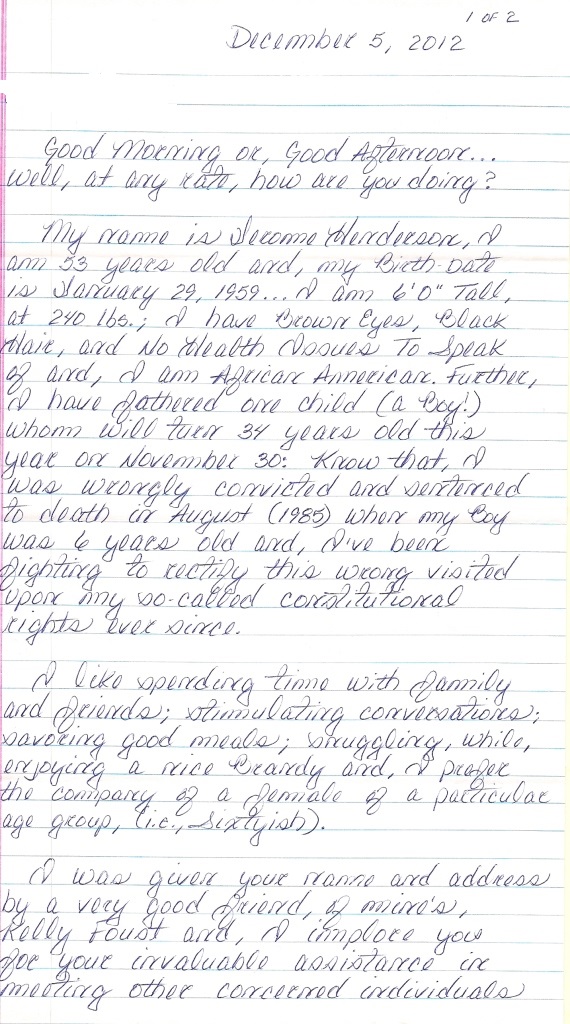 1 OF 2
December 5, 2012
Good Morning or, Good Afternoon...
well, at any rate, how are you doing?
My name is Jerome Henderson, I
am 53 years old and, my Birth-Date
is January 29, 1959... I am 6'0" Tall,
at 240 lbs.; I have Brown Eyes, Black
Hair, and No Health Issues To Speak
of and, I am African American. Further,
I have fathered one child (a Boy!)
whom will turn 34 years old this
year on November 30: Know that, I
was wrongly convicted and sentenced
to death in August (1985) when my boy
was 6 years old and, I've been
fighting to rectify this wrong visited
upon my so-called constitutional
rights ever since.
I like spending time with family
and friends; stimulating conversations;
savoring good meals; snuggling, while,
enjoying a nice Brandy and, I prefer
the company of a female of a particular
age group, (i.e., Sixtyish).
I was given your name and address
by a very good friend, of mine's,
Kelly Foust and, I implore you
for your invaluable assistance in
meeting other concerned individuals